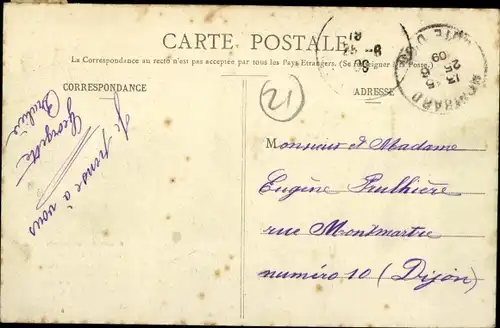 CARTE POSTALE
La Correspondance au recto n'est pas acceptée par tous les Pays Etrangers. (Se renseigner à la Poste.)
CORRESPONDANCE
ADRESSE
MONTBARD
CÔTE D'OR
13
25
09
21
Je pense à vous
Georgette
Monsieur et Madame
Eugène Prulhière
rue Montmartre
numéro 10 (Dijon)